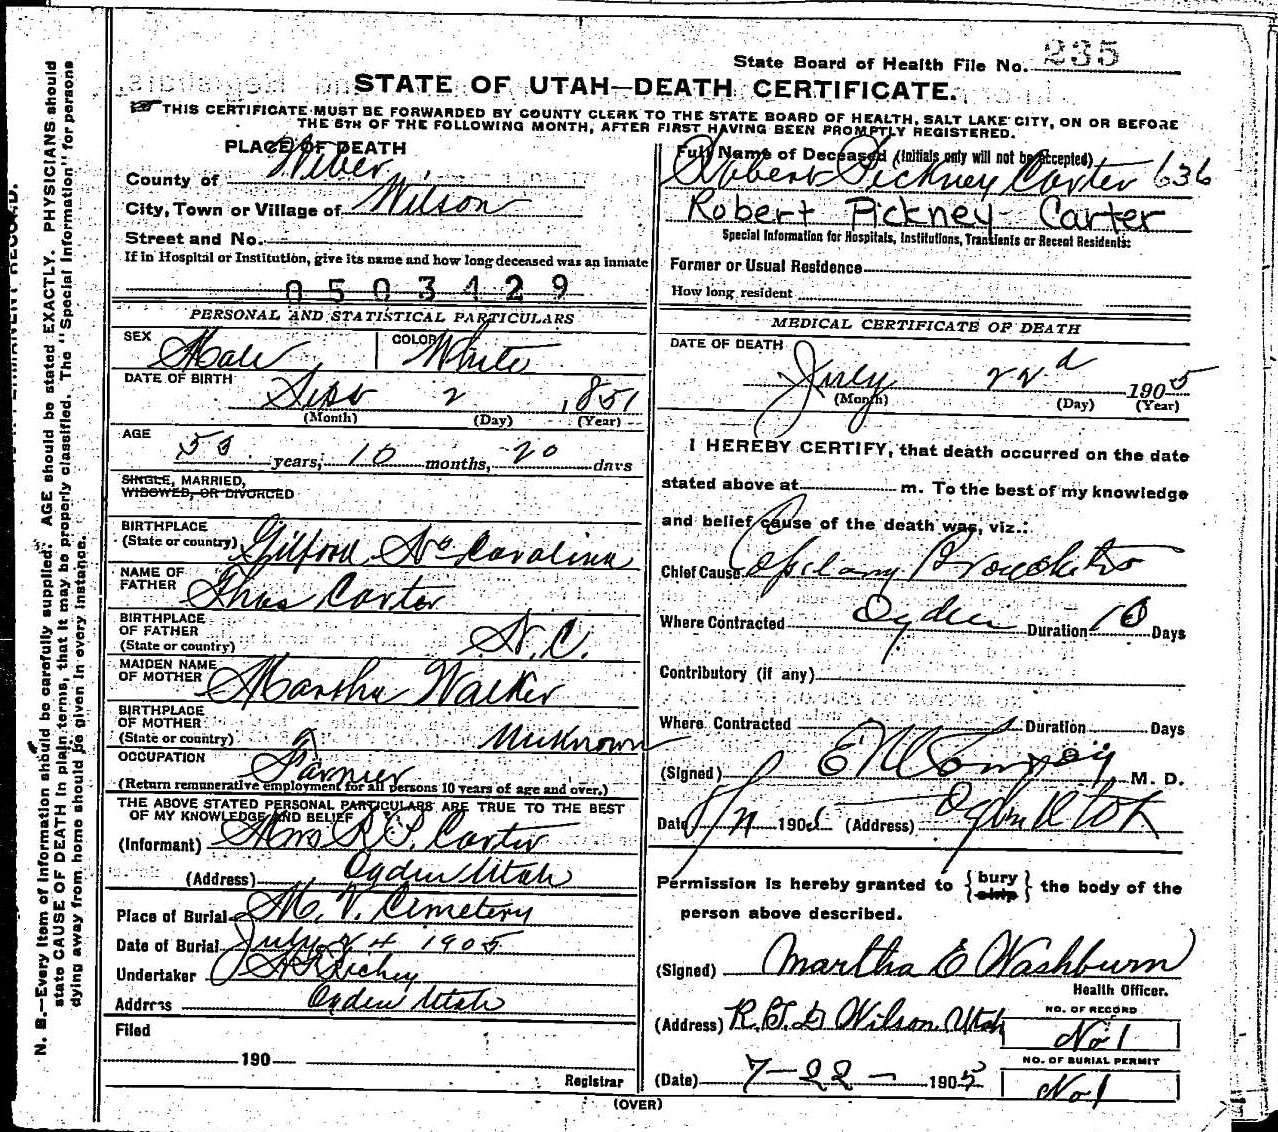 State Board of Health File No. 235
STATE OF UTAH—DEATH CERTIFICATE.
THIS CERTIFICATE MUST BE FORWARDED BY COUNTY CLERK TO THE STATE BOARD OF HEALTH, SALT LAKE CITY, ON OR BEFORE
THE 5TH OF THE FOLLOWING MONTH, AFTER FIRST HAVING BEEN PROMPTLY REGISTERED.
PLACE OF DEATH
County of Weber
City, Town or Village of Wilson
Street and No.
If in Hospital or Institution, give its name and how long deceased was an inmate
0503129
PERSONAL AND STATISTICAL PARTICULARS
SEX Male COLOR White
DATE OF BIRTH Sept 2 1851
(Month) (Day) (Year)
AGE 53 years, 10 months, 20 days
SINGLE, MARRIED,
WIDOWED, OR DIVORCED
BIRTHPLACE
(State or country) Gilford No Carolina
NAME OF
FATHER Thos Carter
BIRTHPLACE
OF FATHER
(State or country) N.C.
MAIDEN NAME
OF MOTHER Marsha Walker
BIRTHPLACE
OF MOTHER
(State or country) Unknown
OCCUPATION Farmer
(Return remunerative employment for all persons 10 years of age and over.)
THE ABOVE STATED PERSONAL PARTICULARS ARE TRUE TO THE BEST
OF MY KNOWLEDGE AND BELIEF
(Informant) Mrs R.P. Carter
(Address) Ogden Utah
Place of Burial M. V. Cemetery
Date of Burial July 24 1905
Undertaker Richey
Address Ogden Utah
Filed
190
Registrar
Full Name of Deceased (Initials only will not be accepted)
Robert Pickney Carter 636
Robert Pickney Carter
Special Information for Hospitals, Institutions, Transients or Recent Residents:
Former or Usual Residence
How long resident
MEDICAL CERTIFICATE OF DEATH
DATE OF DEATH
July 22d 1905
(Month) (Day) (Year)
I HEREBY CERTIFY, that death occurred on the date
stated above at m. To the best of my knowledge
and belief Cause of the death was, viz.:
Chief Cause Capilary Bronchitis
Where Contracted Ogden Duration 10 Days
Contributory (if any)
Where Contracted Duration Days
(Signed) M. D.
Date 1905 (Address) Ogden Utah
Permission is hereby granted to { bury ship } the body of the
person above described.
(Signed) Martha E Washburn
Health Officer.
(Address) R.F.D Wilson Utah
NO. OF RECORD
No 1
(Date) 7-22- 1905
NO. OF BURIAL PERMIT
No 1
(OVER)
N. B.—Every item of information should be carefully supplied. AGE should be stated EXACTLY. PHYSICIANS should
state CAUSE OF DEATH in plain terms, that it may be properly classified. The "Special Information" for persons
dying away from home should be given in every instance.